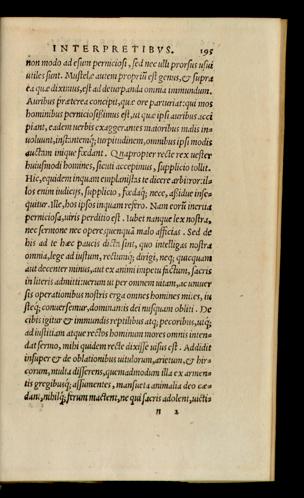 INTERPRETIBVS. 195
non modo ad esum perniciosi, sed nec ulli prorsus usui
utiles sunt. Mustelæ autem propriũ est genus, & supra
ea quæ diximus, est ad deturpanda omnia immundum.
Auribus præterea concipit, quæ ore parturiat: qui mos
hominibus perniciosissimus est, ut quæ ipsi auribus acci
piant, eadem uerbis exaggerantes maioribus malis in=
uoluunt, instantemq; turpitudinem, omnibus ipsi modis
auctam inique fœdant. Quapropter recte rex uester
huiusmodi homines, sicuti accepimus, supplicio tollit.
Hic, equidem inquam emplanistas te dicere arbitror: il=
los enim iudicijs, supplicio, fœdaq; nece, assidue inse=
quitur. Ille, hos ipsos inquam refero. Nam eorũ incuria
perniciosa, uiris perditio est. Iubet nanque lex nostra,
nec sermone nec opere quenquã malo afficias. Sed de
his ad te hæc paucis dicta sint, quo intelligas nostra
omnia, lege ad iustum, rectumq; dirigi, neq; quicquam
aut decenter minus, aut ex animi impetu factum, sacris
in literis admitti: uerum ut per omnem uitam, ac uniuer
sis operationibus nostris erga omnes homines mites, iu
steq; conuersemur, dominantis dei nusquam obliti. De
cibis igitur & immundis reptilibus atq; pecoribus, utq;
ad iustitiam atque rectos hominum mores omnis inten=
dat sermo, mihi quidem recte dixisse uisus est. Addidit
insuper & de oblationibus uitulorum, arietum, & hir=
corum, multa disserens, quemadmodum illa ex armen=
tis gregibusq; assumentes, mansueta animalia deo cæ=
dant, nihilq; ferum mactent, ne qui sacris adolent, uictis
n 2